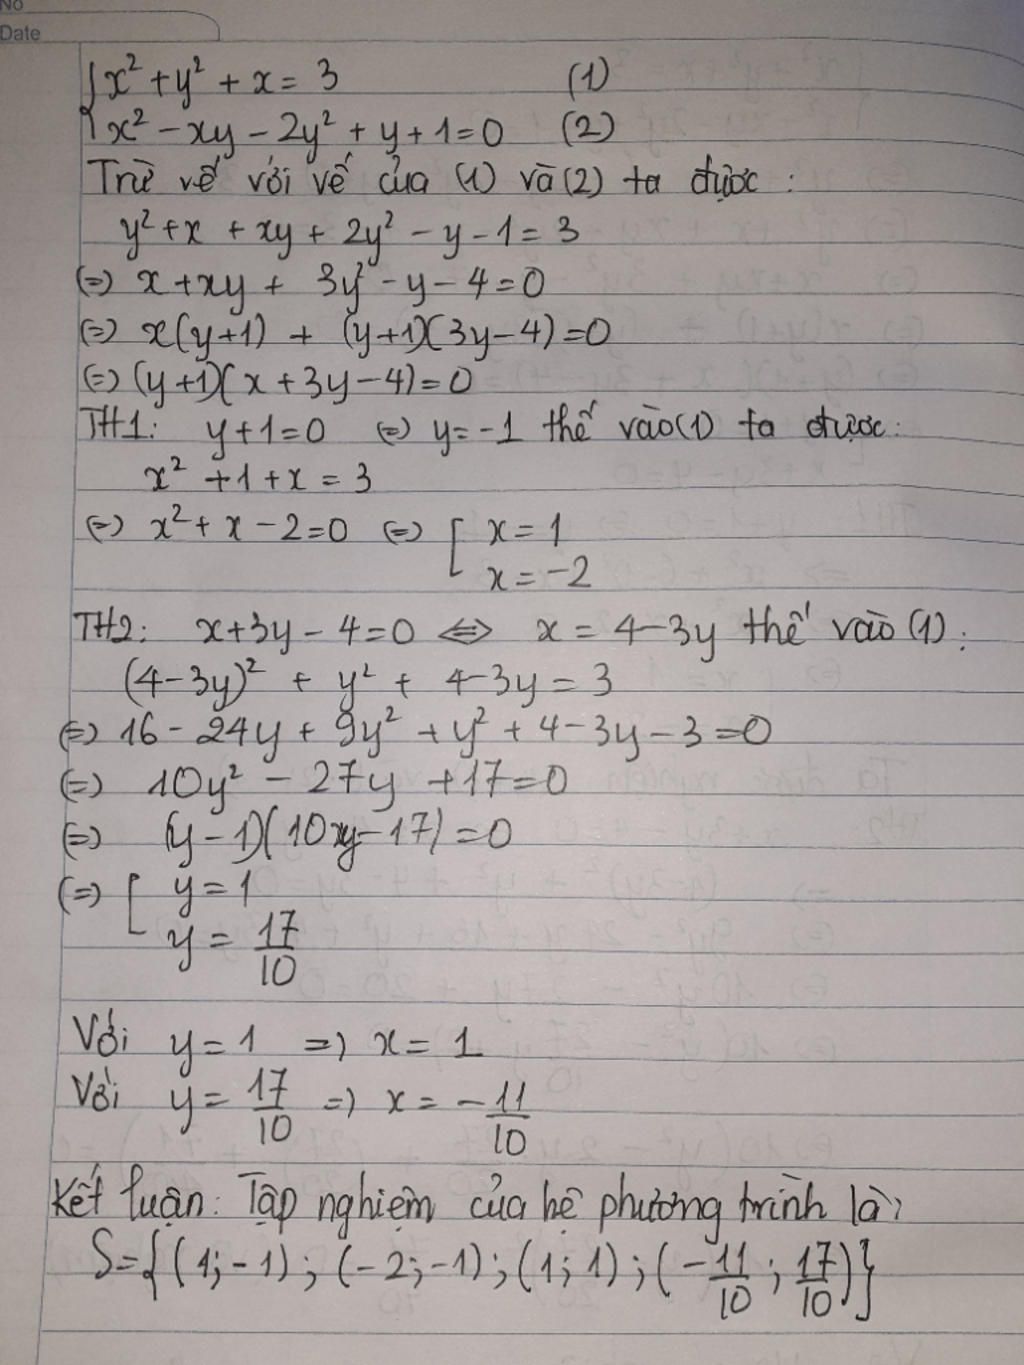 No
Date
{x² + y² + x = 3 (1)
x² - xy - 2y² + y + 1 = 0 (2)
Trừ vế với vế của (1) và (2) ta được:
y² + x + xy + 2y² - y - 1 = 3
(=) x + xy + 3y² - y - 4 = 0
(=) x(y+1) + (y+1)(3y-4) = 0
(=) (y+1)(x + 3y - 4) = 0
TH1: y+1=0 (=) y = -1 thế vào (1) ta được:
x² + 1 + x = 3
(=) x² + x - 2 = 0 (=) [x = 1
x = -2
TH2: x+3y-4=0 <=> x = 4-3y thế vào (1):
(4-3y)² + y² + 4-3y = 3
(=) 16 - 24y + 9y² + y² + 4 - 3y - 3 = 0
(=) 10y² - 27y + 17 = 0
(=) (y-1)(10y-17) = 0
(=) [y = 1
y = 17/10
Với y = 1 => x = 1
Với y = 17/10 => x = -11/10
Kết luận: Tập nghiệm của hệ phương trình là:
S={(1;-1);(-2;-1);(1;1);(-11/10;17/10)}